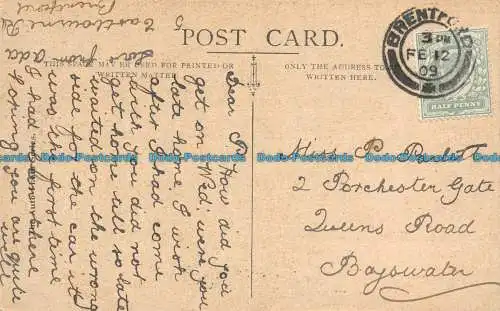 POST CARD.
THIS SPACE MAY BE USED FOR PRINTED OR
WRITTEN MATTER.
ONLY THE ADDRESS TO BE
WRITTEN HERE.
BRENTFORD
3 PM
FE 12
09
HALF PENNY
5
Eastbourne Rd
Brentford
Dear P. How did you
get on Wed, were you
late home I wish
after I had come
with you did not
get home till so late
waited on the wrong
side for the car it
was the first time
I had been there
hoping you are quite
well
Love from Ada
Miss P.
2 Porchester Gate
Queens Road
Bayswater
Postcards Postcards Postcards Postcards